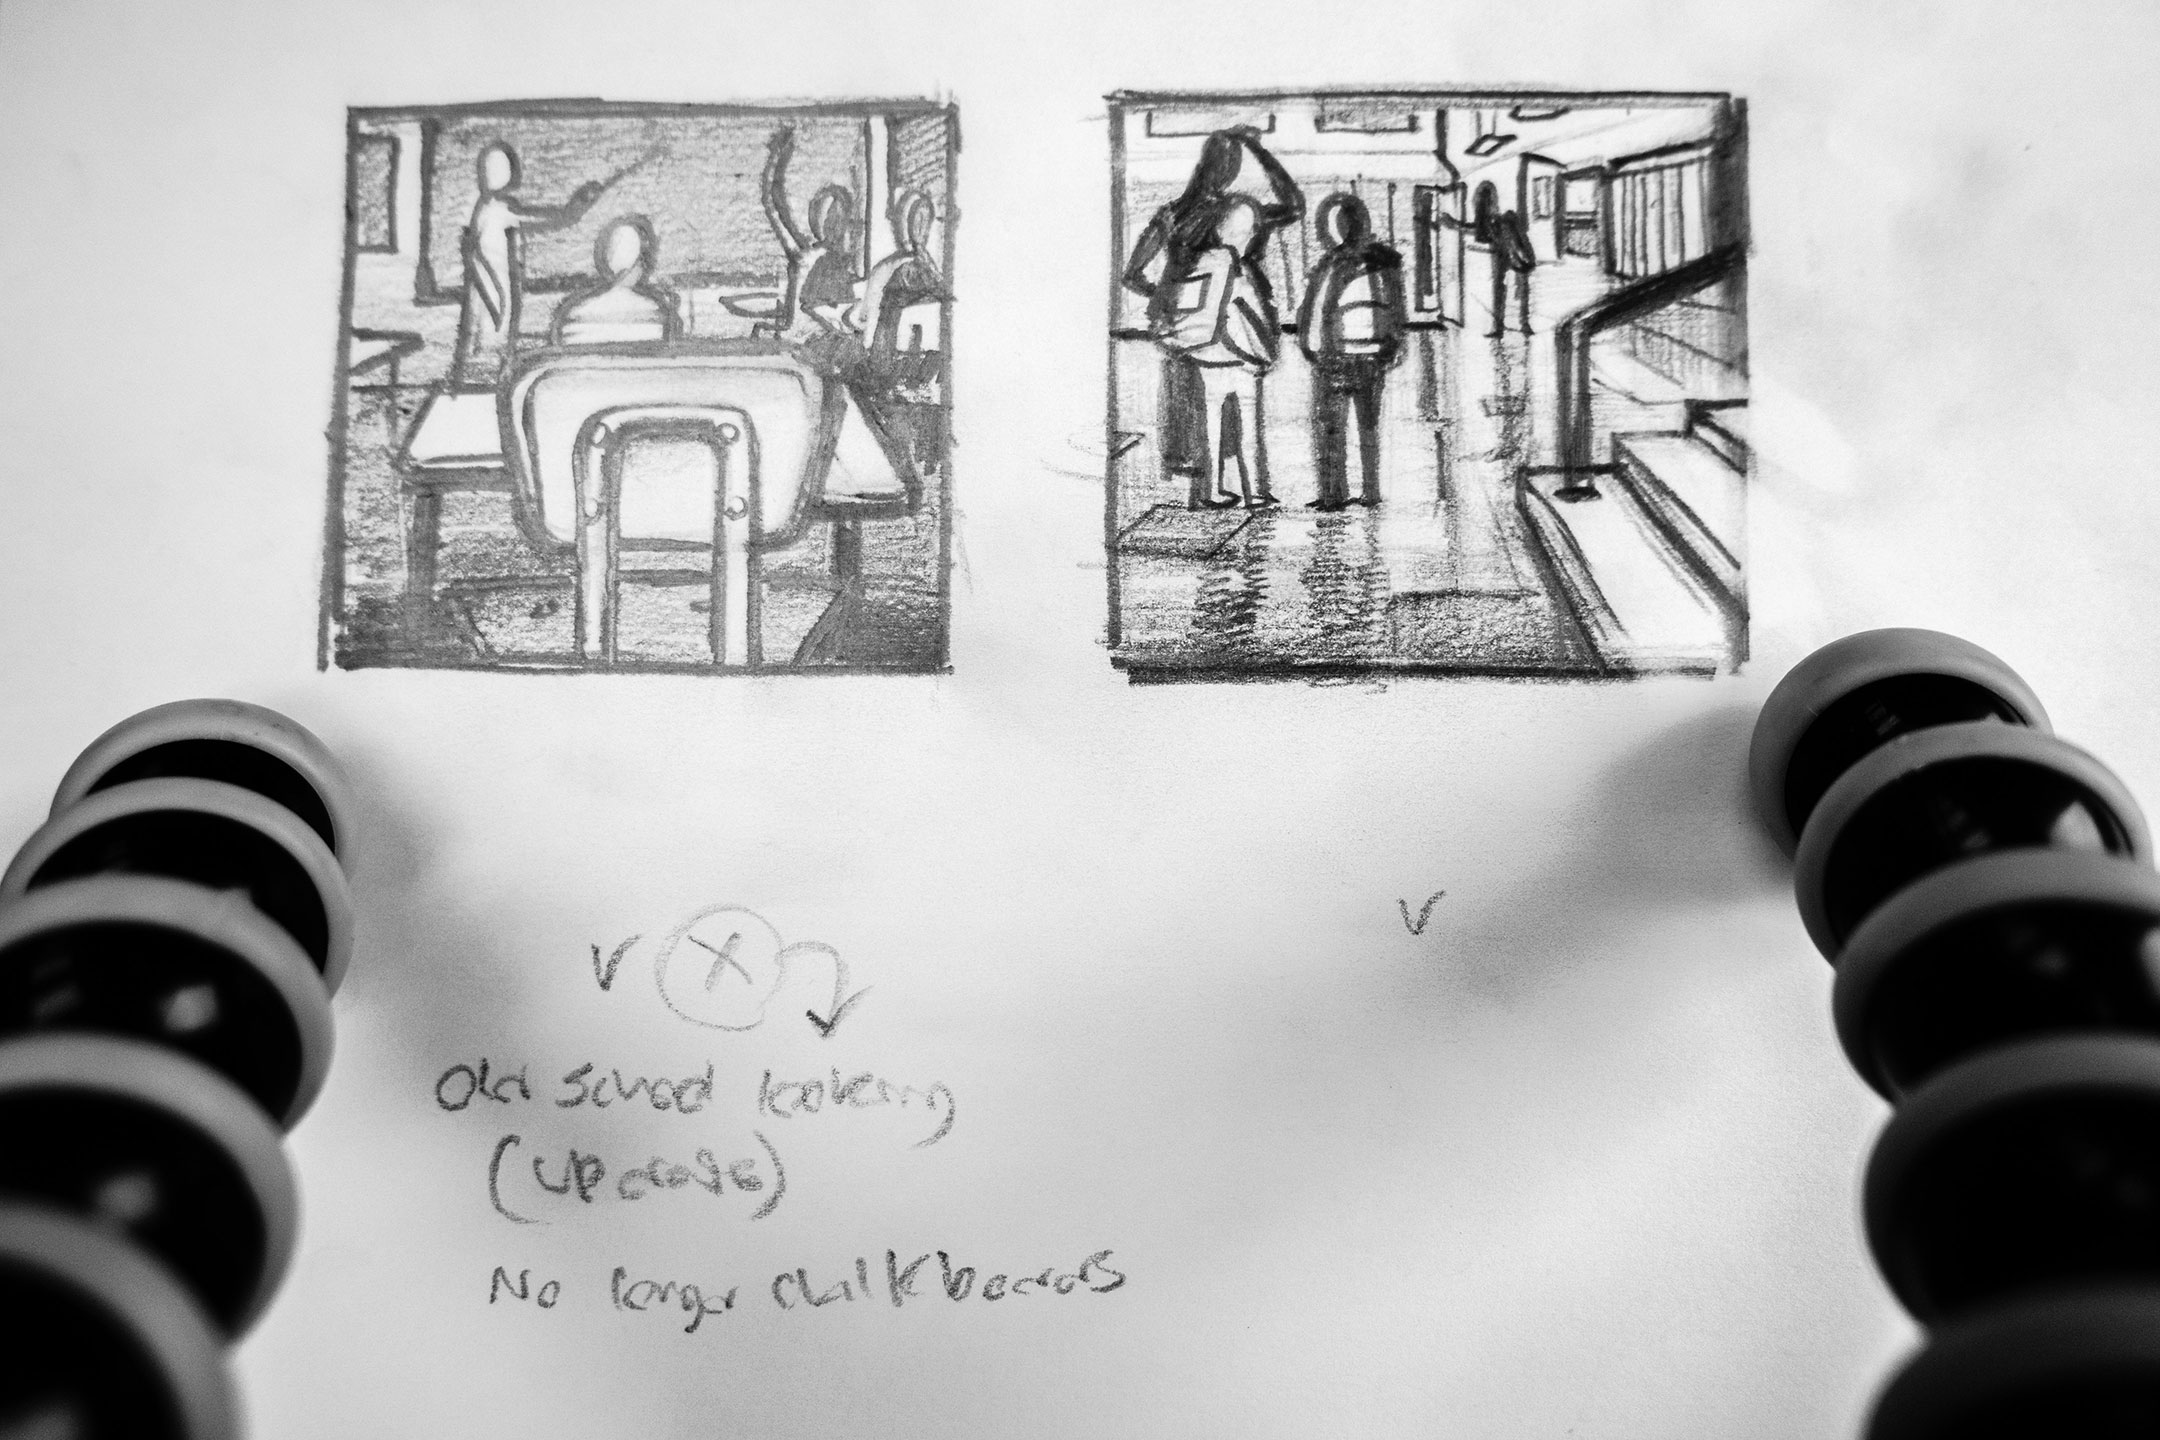 V X V
Old School looking
(update)
No longer chalkboards